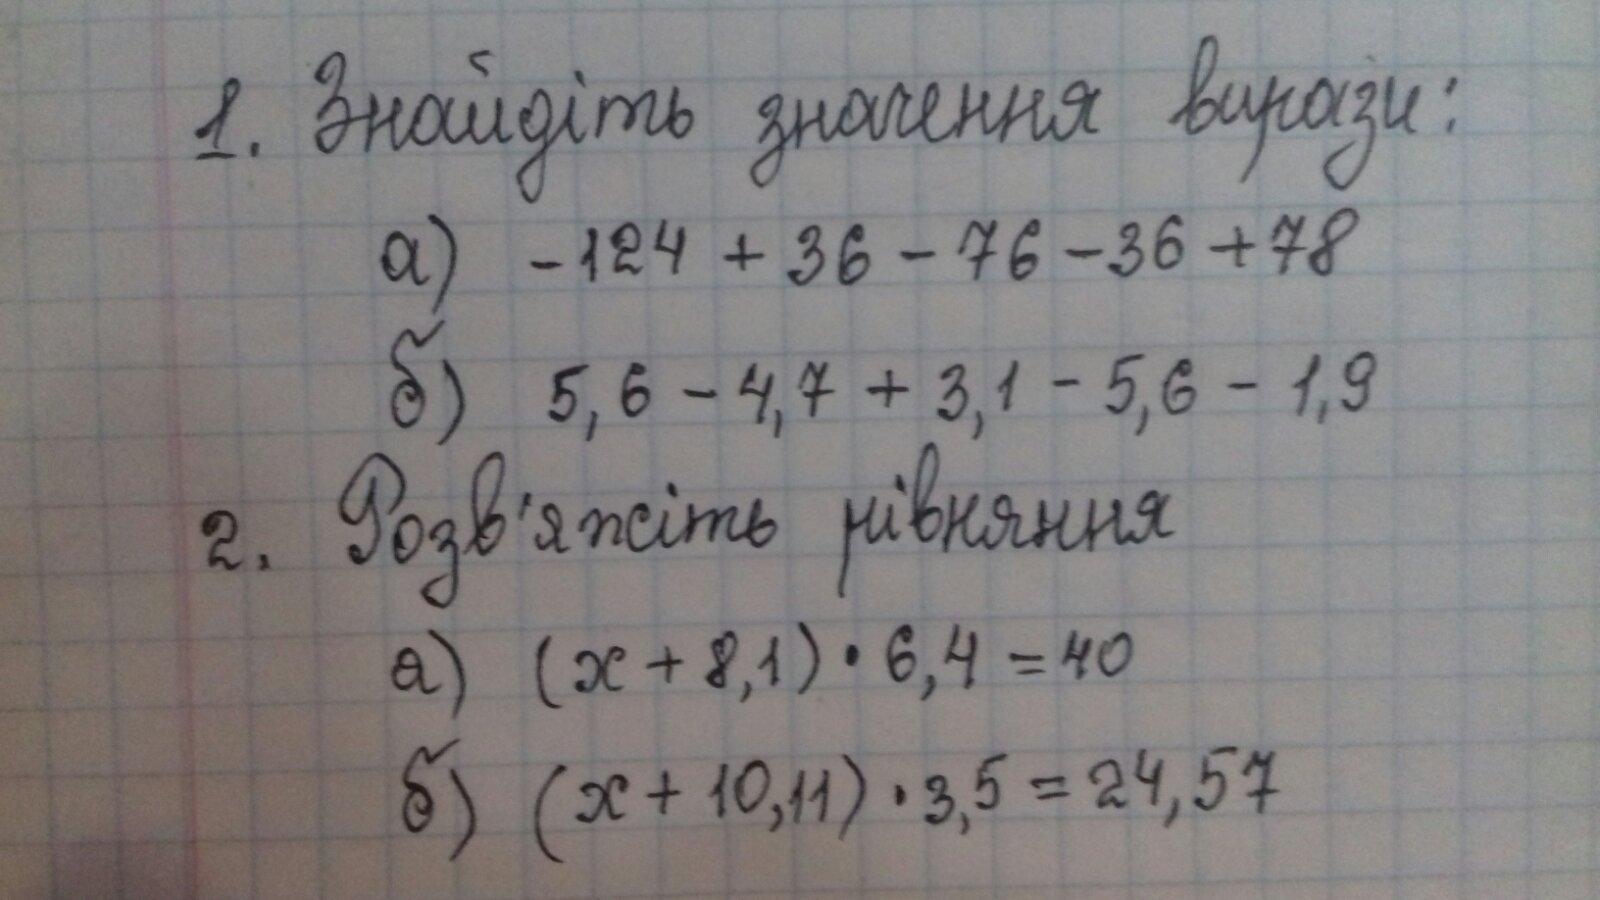 1. Знайдіть значення вирази:
а) -124 + 36 - 76 - 36 + 78
б) 5,6 - 4,7 + 3,1 - 5,6 - 1,9
2. Розв'яжіть рівняння
а) (x + 8,1) · 6,4 = 40
б) (x + 10,11) · 3,5 = 24,57